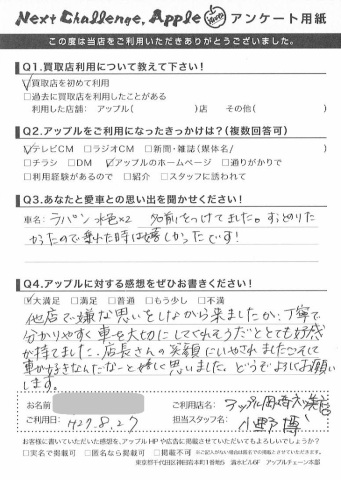 Next Challenge, Apple アンケート用紙
この度は当店をご利用いただきありがとうございました。
Q1.買取店利用について教えて下さい！
☑買取店を初めて利用
□過去に買取店を利用したことがある
利用した店舗： アップル( )店 その他( )
Q2.アップルをご利用になったきっかけは？(複数回答可)
☑テレビCM □ラジオCM □新聞・雑誌(媒体名/ )
□チラシ □DM ☑アップルのホームページ □通りがかりで
□利用経験があるので □紹介 □スタッフに誘われて
Q3.あなたと愛車との思い出を聞かせください！
車名： ラパン 水色×2 名前をつけてました。ずっとのりた
かったので乗れた時は嬉しかったです！
Q4.アップルに対する感想をぜひお書きください！
☑大満足 □満足 □普通 □もう少し □不満
他店で嫌な思いをしながら来ましたが、丁寧で
分かりやすく車を大切にしてくれそうだととても好感
が持てました。店長さんの笑顔にいやされました
車が好きなんだなーと嬉しく思いました。どうぞよろしくお願い
します。
お名前 ご利用店名： アップル
ご利用日： H27.8.27 担当スタッフ名： 小野 博
お客様に書いていただいた感想を、アップルHPや広告に掲載させていただいてもよろしいでしょうか？
□実名で掲載可 □匿名なら掲載可 □掲載不可
東京都千代田区神田前本町1番地 清水ビル6F アップルチェーン本部